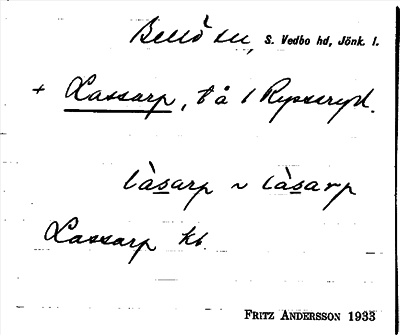 Bellö sn, S. Vedbo hd, Jönk. l.
+ Lassarp, t å 1 Rypseryd.
làsarp ~ làsarp
Lassarp kb.
FRITZ ANDERSSON 1933